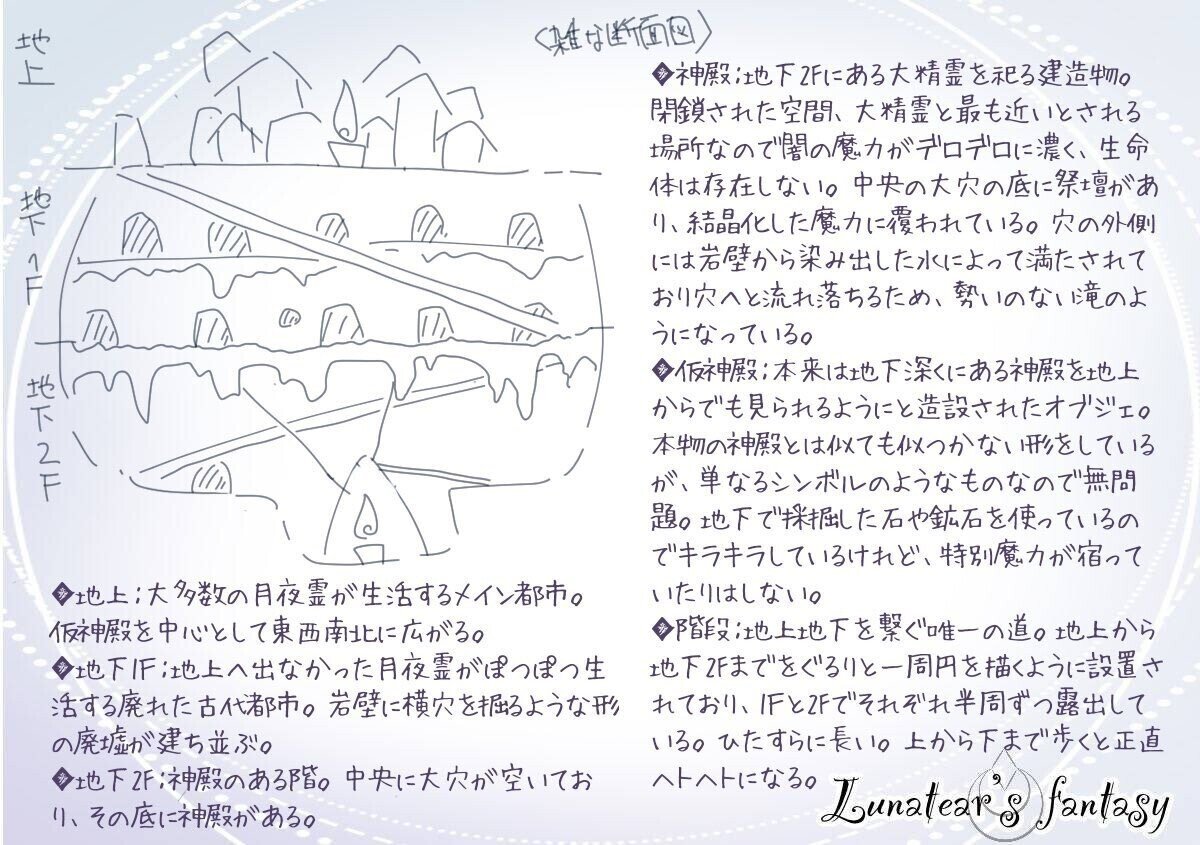 〈雑な断面図〉
地上
地下1F
地下2F
◆地上;大多数の月夜霊が生活するメイン都市。
仮神殿を中心として東西南北に広がる。
◆地下1F;地上へ出なかった月夜霊がぽつぽつ生
活する廃れた古代都市。岩壁に横穴を掘るような形
の廃墟が建ち並ぶ。
◆地下2F;神殿のある階。中央に大穴が空いてお
り、その底に神殿がある。
◆神殿;地下2Fにある大精霊を祀る建造物。
閉鎖された空間、大精霊と最も近いとされる
場所なので闇の魔力がデロデロに濃く、生命
体は存在しない。中央の大穴の底に祭壇があ
り、結晶化した魔力に覆われている。穴の外側
には岩壁から染み出した水によって満たされて
おり穴へと流れ落ちるため、勢いのない滝のよ
うになっている。
◆仮神殿;本来は地下深くにある神殿を地上
からでも見られるようにと造設されたオブジェ。
本物の神殿とは似ても似つかない形をしている
が、単なるシンボルのようなものなので無問
題。地下で採掘した石や鉱石を使っているの
でキラキラしているけれど、特別魔力が宿って
いたりはしない。
◆階段;地上地下を繋ぐ唯一の道。地上から
地下2Fまでをぐるりと一周円を描くように設置さ
れており、1Fと2Fでそれぞれ半周ずつ露出して
いる。ひたすらに長い。上から下まで歩くと正直
ヘトヘトになる。
Lunatear's fantasy